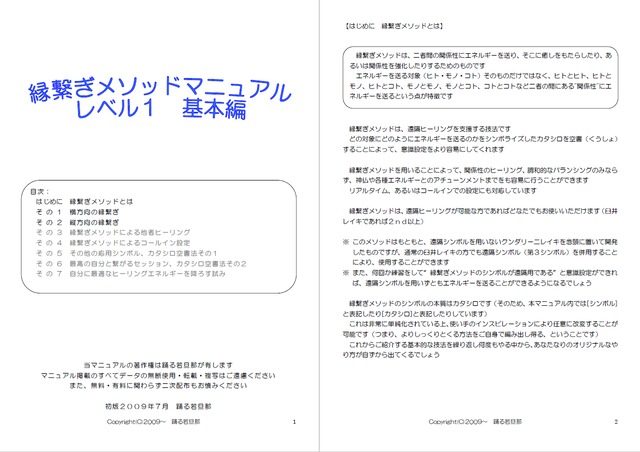 縁繋ぎメソッドマニュアル
レベル1 基本編
目次:
はじめに 縁繋ぎメソッドとは
その1 横方向の縁繋ぎ
その2 縦方向の縁繋ぎ
その3 縁繋ぎメソッドによる他者ヒーリング
その4 縁繋ぎメソッドによるコールイン設定
その5 その他の応用シンボル、カタシロ空書法その1
その6 最高の自分と繋がるセッション、カタシロ空書法その2
その7 自分に最適なヒーリングエネルギーを降ろす試み
当マニュアルの著作権は踊る若旦那が有します
マニュアル掲載のすべてデータの無断使用・転載・複写はご遠慮ください
また、無料・有料に関わらず二次配布もお慎みください
初版2009年7月 踊る若旦那
Copyright(C)2009~ 踊る若旦那
1
【はじめに 縁繋ぎメソッドとは】
縁繋ぎメソッドは、二者間の関係性にエネルギーを送り、そこに癒しをもたらしたり、あ
るいは関係性を強化したりするためのものです
エネルギーを送る対象(ヒト・モノ・コト)そのものだけではなく、ヒトとヒト、ヒトと
モノ、ヒトとコト、モノとモノ、モノとコト、コトとコトなど二者の間にある“関係性”にエ
ネルギーを送るという点が特徴です
縁繋ぎメソッドは、遠隔ヒーリングを支援する技法です
どの対象にどのようにエネルギーを送るのかをシンボライズしたカタシロを空書(くうしょ)
することによって、意識設定をより容易にしてくれます
縁繋ぎメソッドを用いることによって、関係性のヒーリング、調和的なバランシングのみなら
ず、神仏や各種エネルギーとのアチューンメントまでをも容易に行うことができます
リアルタイム、あるいはコールインでの設定にも対応しています
縁繋ぎメソッドは、遠隔ヒーリングが可能な方であればどなたでもお使いいただけます(臼井
レイキであれば2nd以上)
※ このメソッドはもともと、遠隔シンボルを用いないクンダリーニレイキを念頭に置いて開発
したものですが、通常の臼井レイキの方でも遠隔シンボル(第3シンボル)を併用すること
により、使用することができます
※ また、何回か練習をして“縁繋ぎメソッドのシンボルが遠隔用である”と意識設定ができれ
ば、遠隔シンボルを用いずともエネルギーを送ることができるようになるでしょう
縁繋ぎメソッドのシンボルの本質はカタシロです(そのため、本マニュアル内では[シンボル]
と表記したり[カタシロ]と表記したりしています)
これは非常に単純化されている上、使い手のインスピレーションにより任意に改変することが
可能です(つまり、よりしっくりとくる方法をご自身で編み出し得る、ということです)
これからご紹介する基本的な技法を繰り返し何度もやる中から、あなたなりのオリジナルなや
り方が自ずから出てくるでしょう
Copyright(C)2009~ 踊る若旦那
2